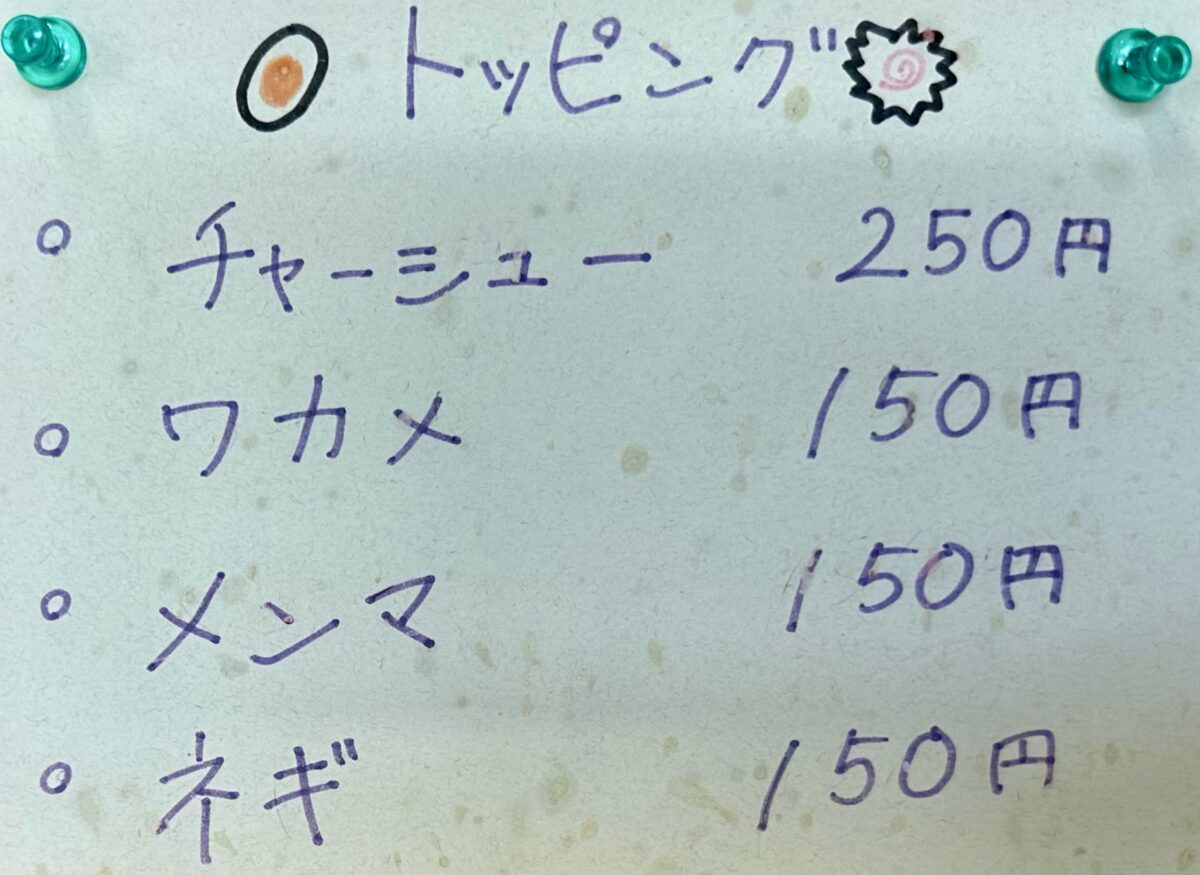 トッピング
○ チャーシュー 250円
○ ワカメ 150円
○ メンマ 150円
○ ネギ 150円